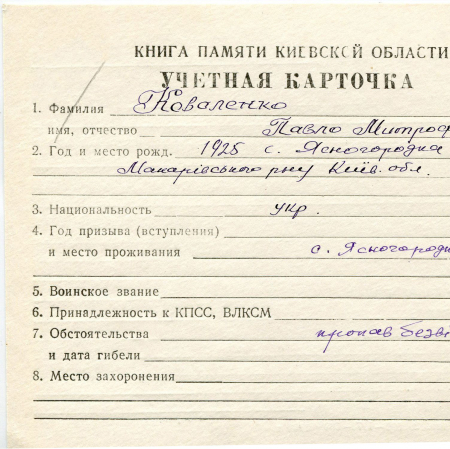 КНИГА ПАМЯТИ КИЕВСКОЙ ОБЛАСТИ
УЧЕТНАЯ КАРТОЧКА
1. Фамилия Коваленко
имя, отчество Павло Митроф
2. Год и место рожд. 1925 с. Ясногородка
Макарівського р-ну Київ. обл.
3. Национальность укр.
4. Год призыва (вступления)
и место проживания с. Ясногородк
5. Воинское звание
6. Принадлежность к КПСС, ВЛКСМ
7. Обстоятельства пропав безв
и дата гибели
8. Место захоронения